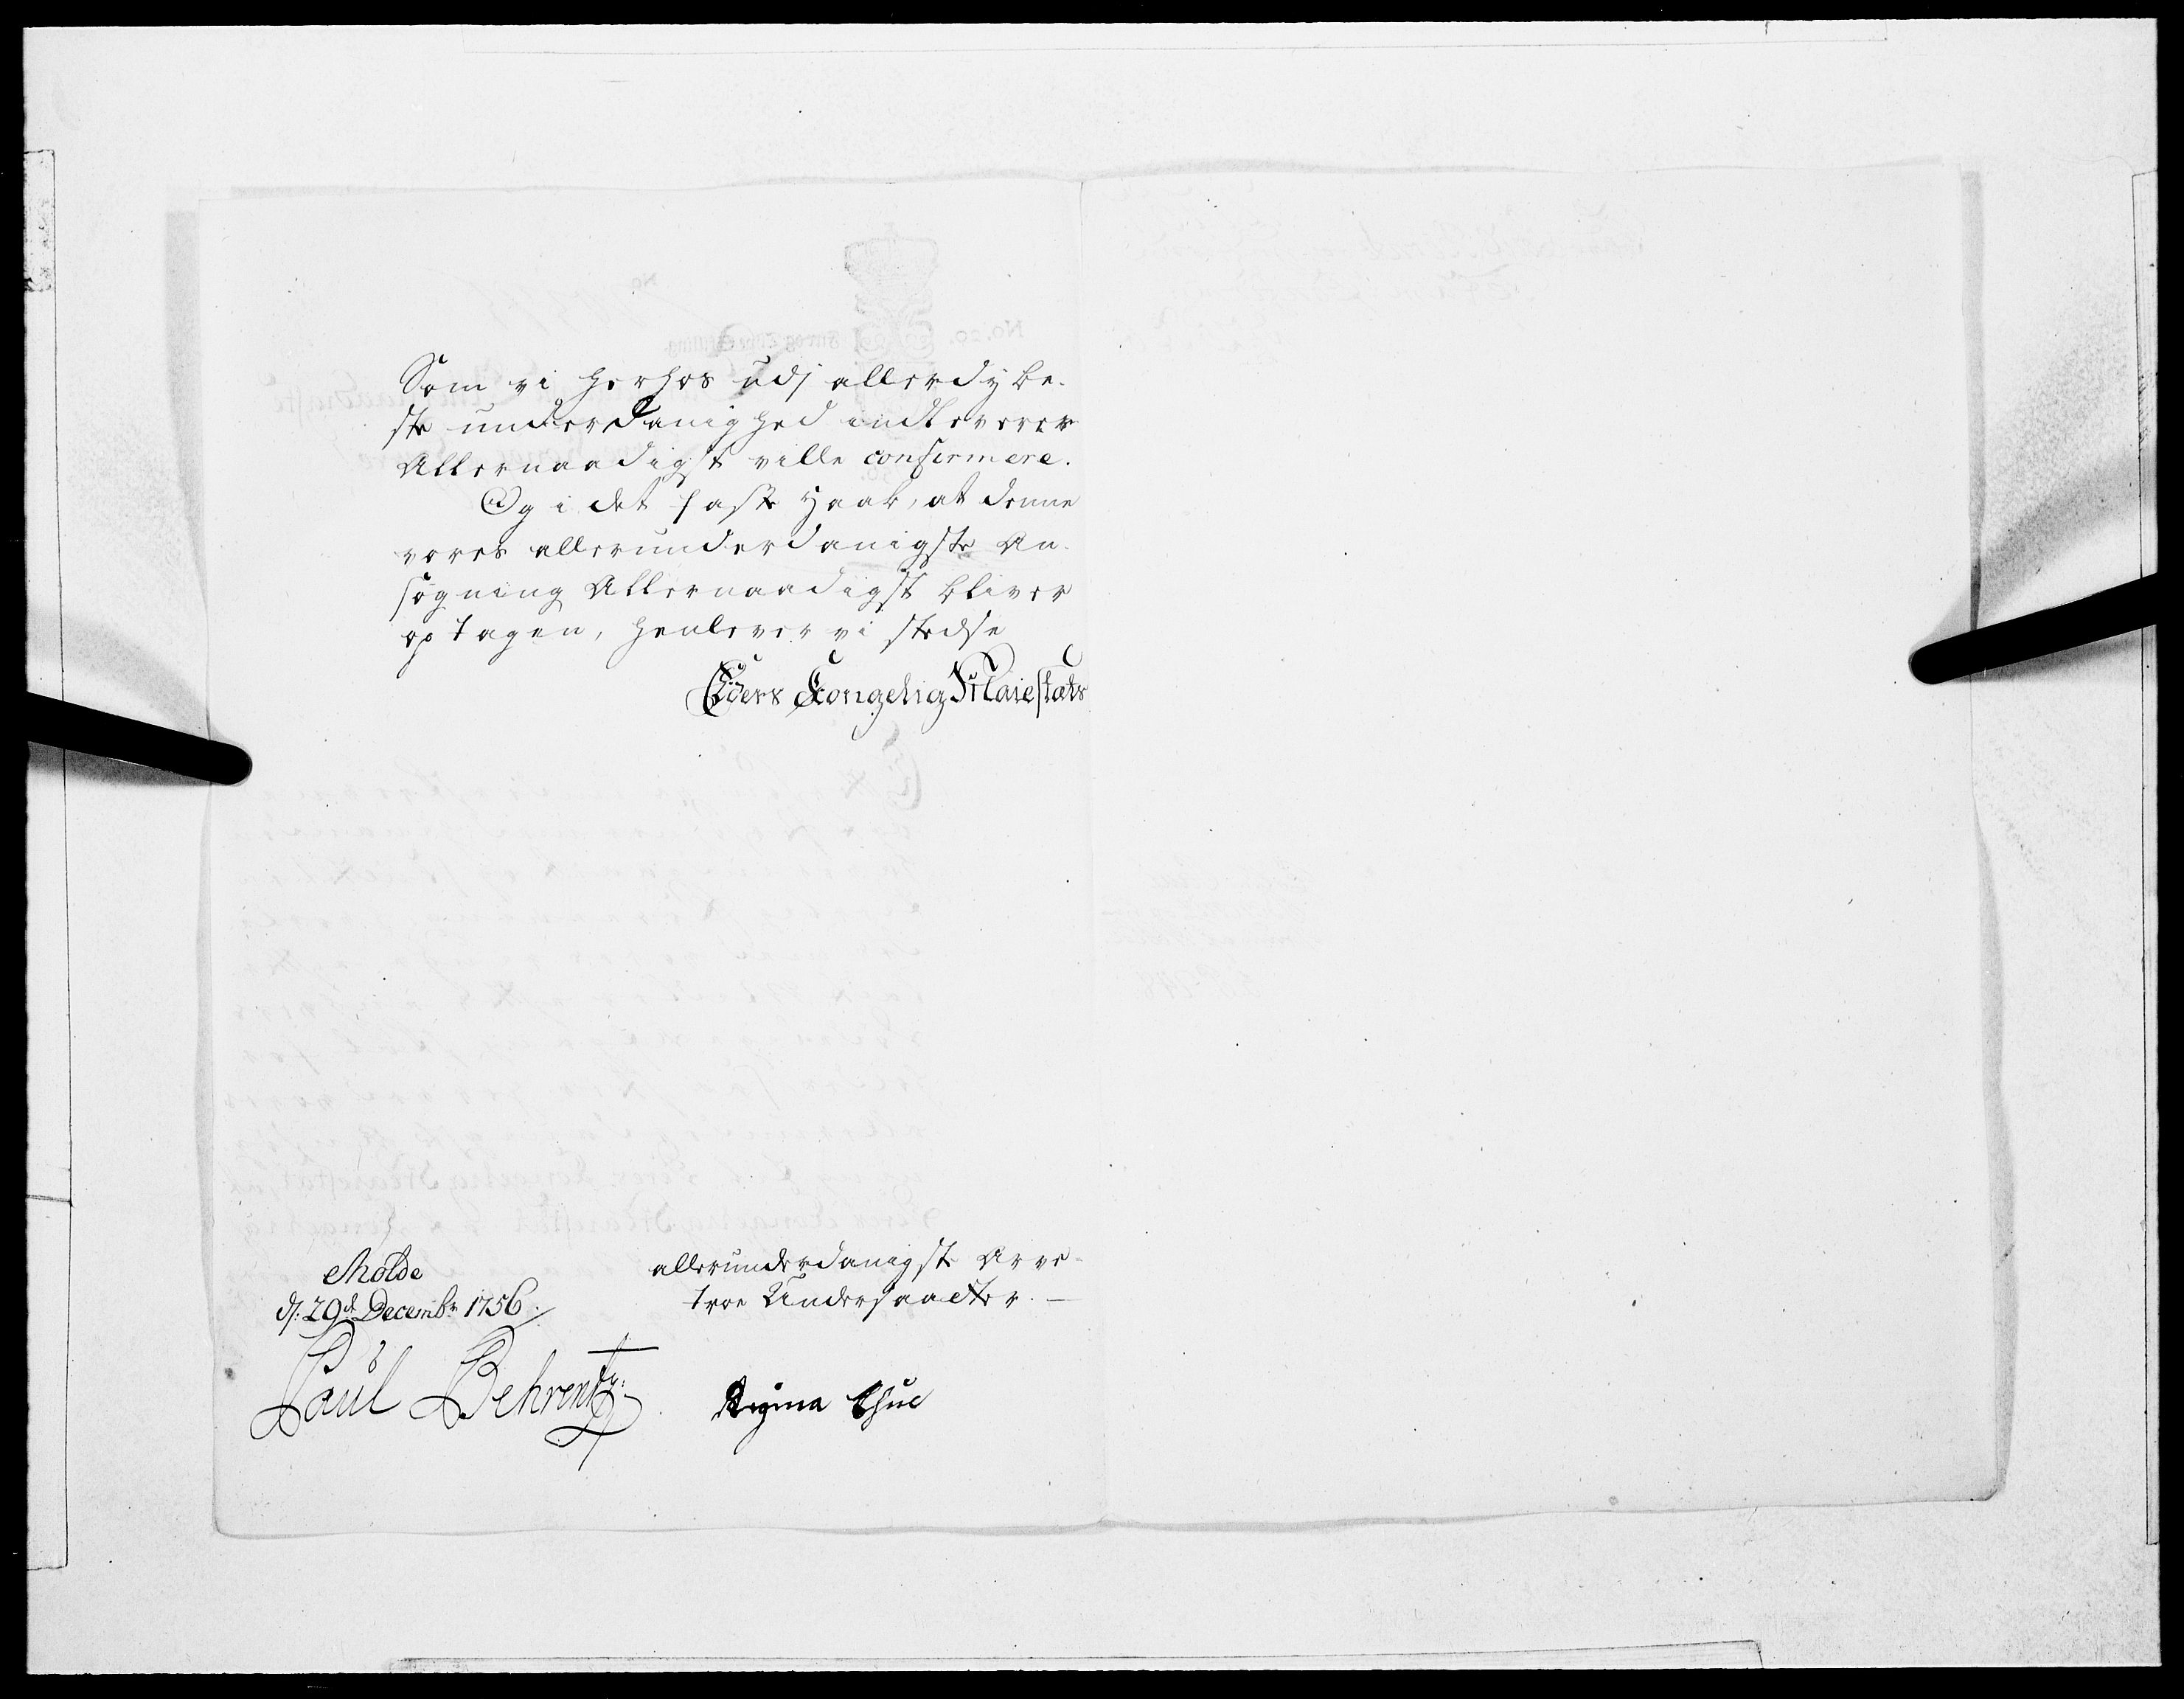 Som vi herhos udj allerdybe-
ste underdanighed indleverer
Allernaadigst ville confirmere.
Og i det faste Haab, at denne
vores allerunderdanigste An-
søgning Allernaadigst bliver
optagen, henlever vi stedse
Eders Kongelig Maiestæts
allerunderdanigste Arve-
troe Undersaatter.
Molde
d: 29d Decembr 1756.
Paul Behrentz:
Regina Thue